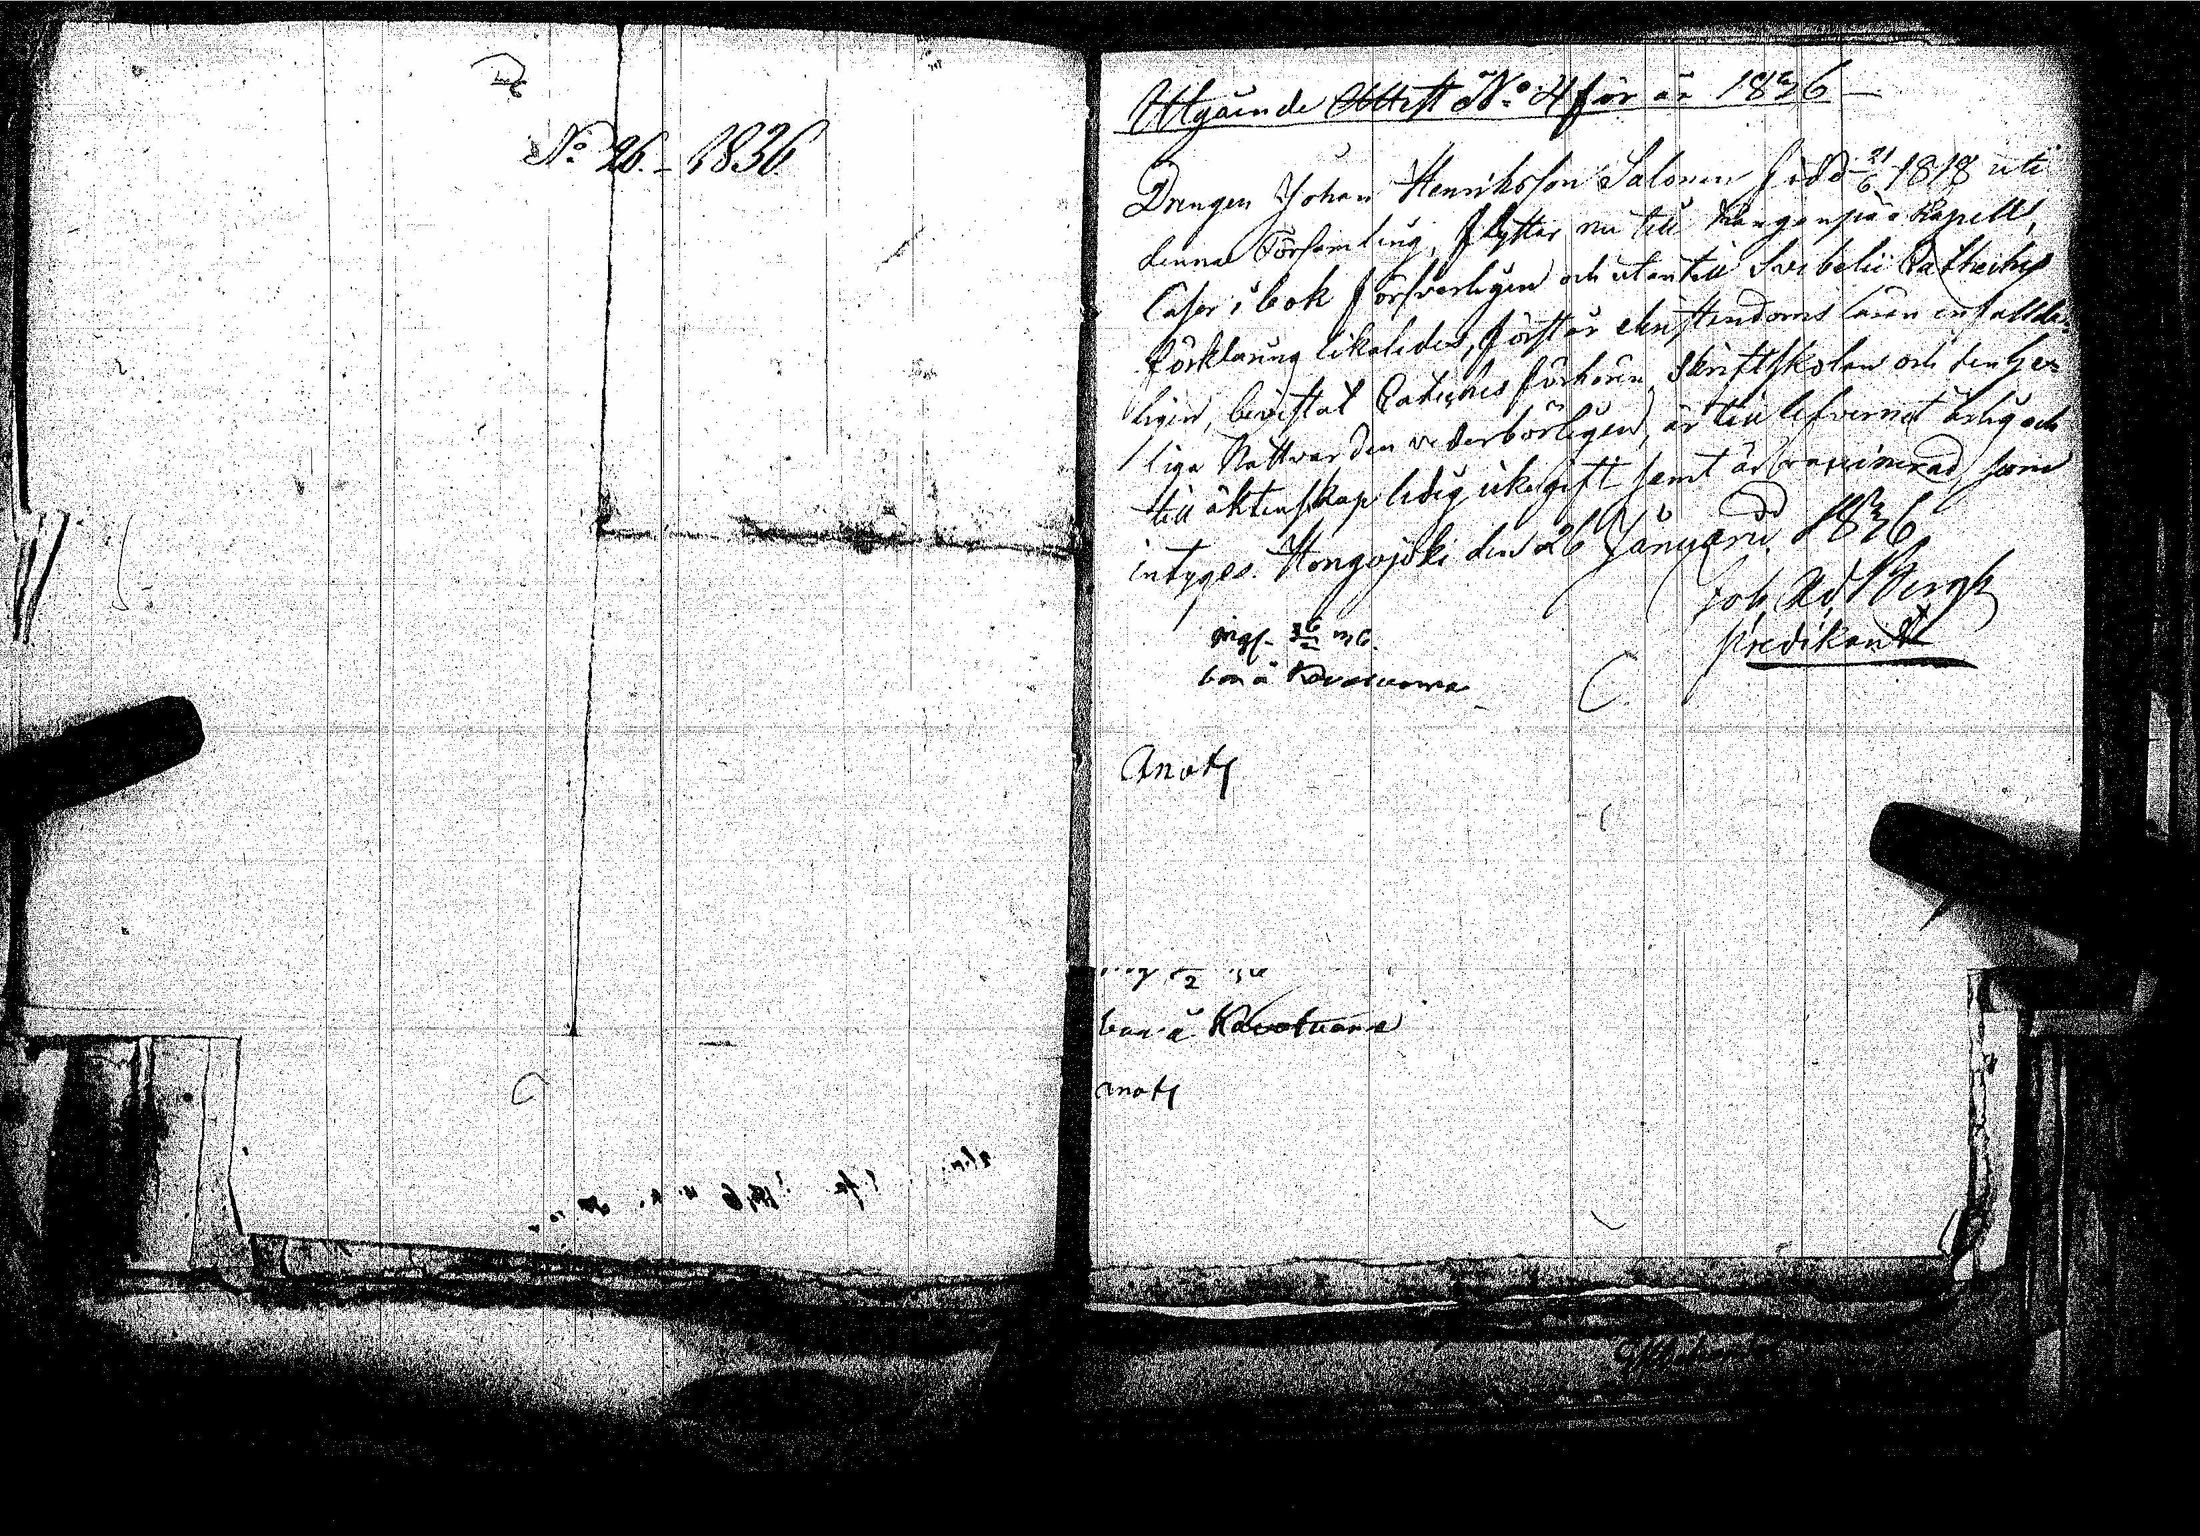 No 26. - 1836
Utgående Attest No 4 för år 1836
Drengen Johan Henriksson Salonen född 21/6 1818 uti
denna Församling, flyttar nu till Kanganpää Kapell,
läser i bok försvarligen och utantill Svebelii Catheches
förklaring likaledes, förstår christendoms läran enfaldte-
ligen, bevistat Catechis förhören, Skriftskolan och den he-
liga Nattvarden vederbörligen, är till lefvernet ärlig och
till äktenskap ledig icke gift samt är vaccinerad, som
intyges. Hongojoki den 26 Januarii 1836
Joh. Ad. Bergh
predikant
bor å
Anot
bor å
anot